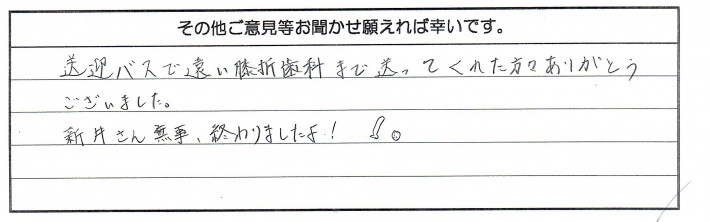 その他ご意見等お聞かせ願えれば幸いです。
送迎バスで遠い膝折歯科まで送ってくれた方々ありがとう
ございました。
新井さん無事、終わりましたよ!